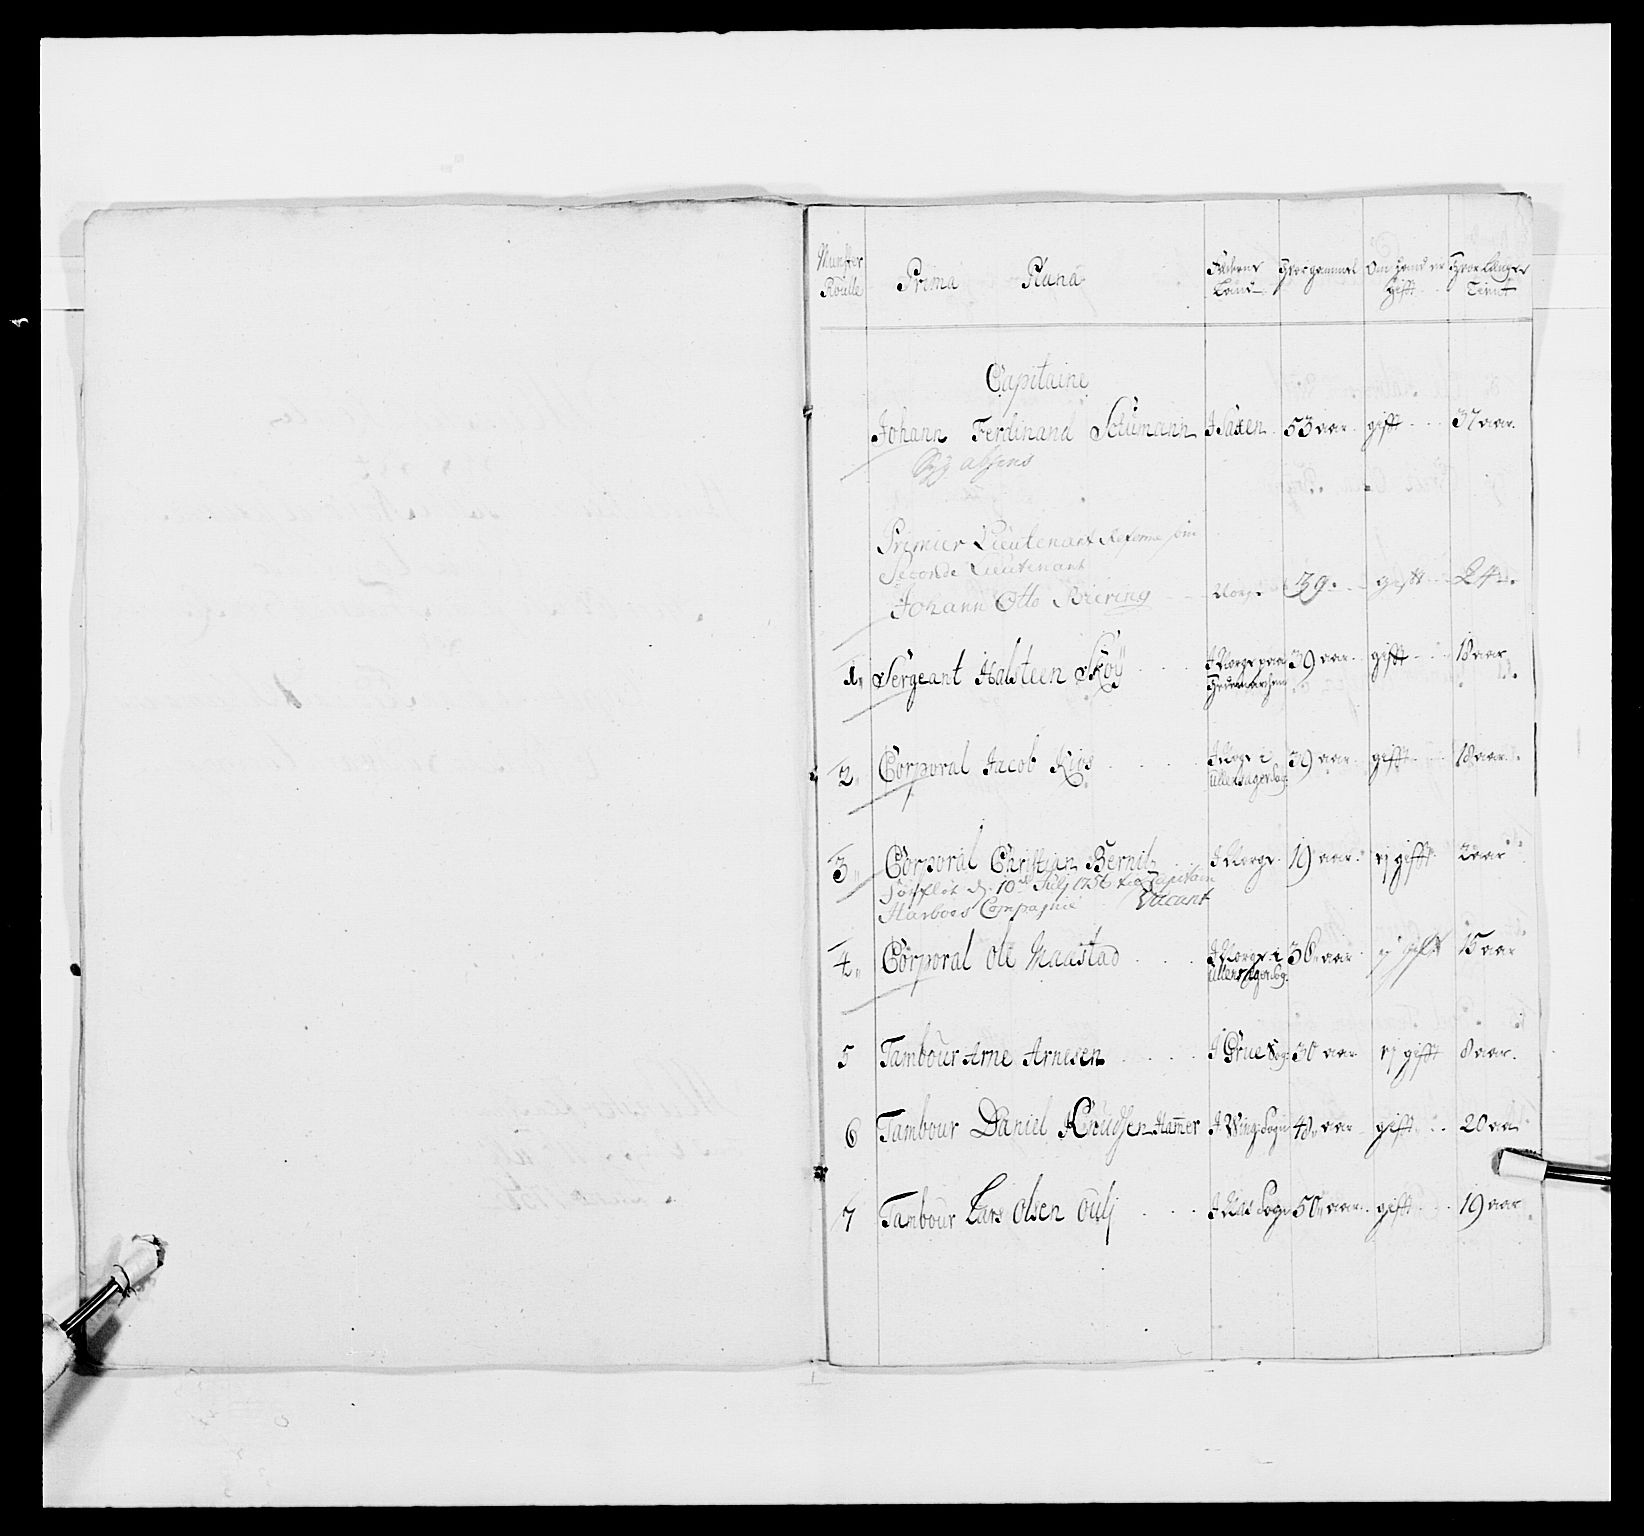 Munster Roulle Prima Plana Fæderne Land Hvor gammel Om hand er Gift Hvor Længe Tient
Capitaine
Johann Ferdinand Schumann J Saxen 53 aar gift 37 aar.
Syg absens
Premier Lieutenant Reforme som
Seconde Lieutenant
Johann Otto Biering Norge 39. gift 24.
1. Sergeant Halsteen Skøÿ J Norge paa Hedemarchen 39 aar gifft 18 aar
2. Corporal Jacob Kios J Norge i Ullensager Sog: 39 aar gifft 18 aar.
3. Corporal Christian Bernitz J Norge. 19 aar. ej gifft 2 aar
d. 10de Julj 1756 Capitain
Harboes Compagnie Vacant
4. Corporal Ole Maastad J Norge i Ullensager Sog: 36 aar ej gifft 15 aar
5 Tambour Arne Arnesen J Grue Sog: 30 aar ej gifft 8 aar.
6 Tambour Daniel Knudsen Hammer J Wing: Sogn 48 aar gifft 20 aar
7 Tambour Lars Olsen Oulj J Nas Sogn 50 aar. gifft 19 aar